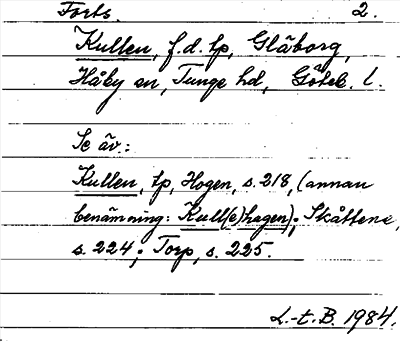 Forts. 2.
Kullen, f.d. tp, Glåborg,
Håby sn, Tunge hd, Göteb. l.
Se äv.:
Kullen, tp, Hogen, s. 218, (annan
benämning: Kull(e)hagen); Skåttene,
s. 224; Torp, s. 225.
L.-t. B. 1984.